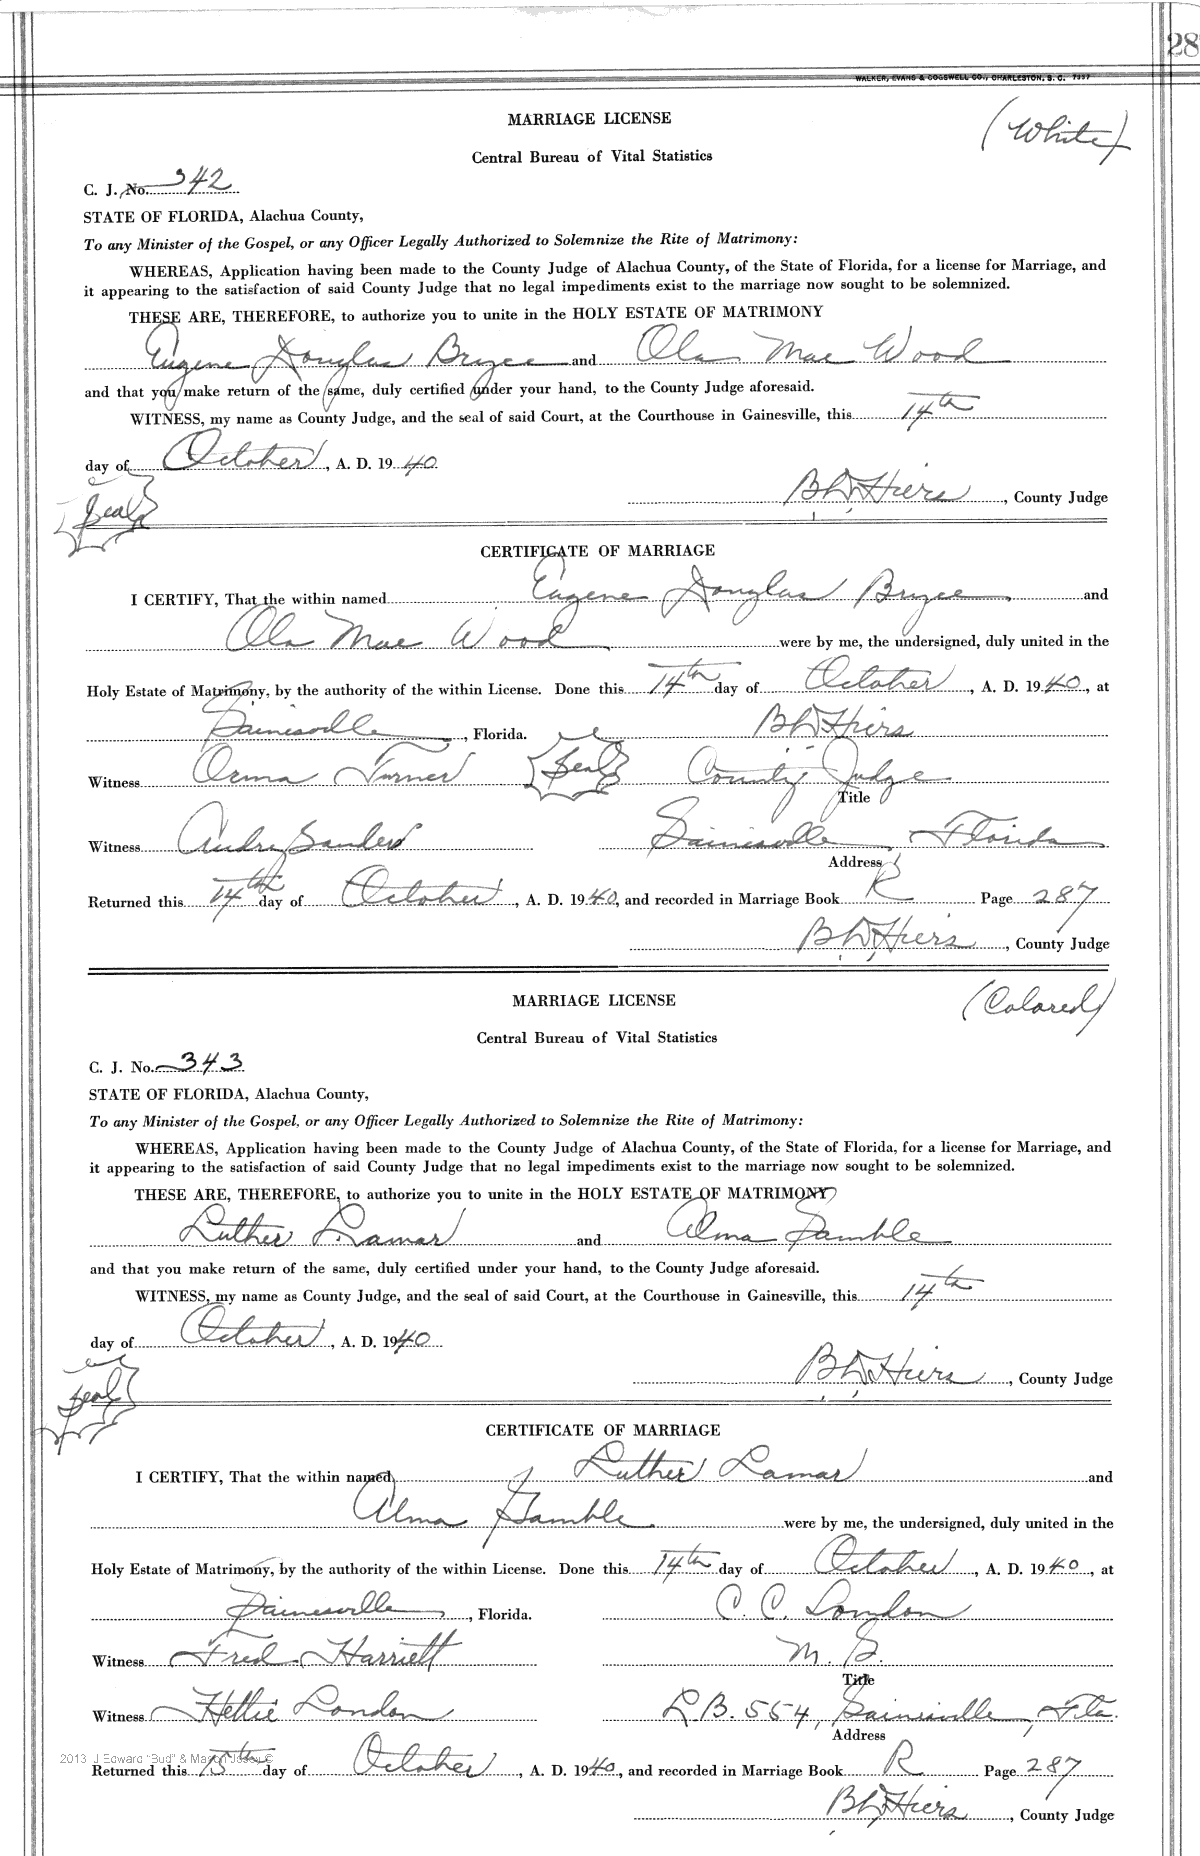 28
WALKER, EVANS & COGSWELL CO., CHARLESTON, S. C. 7337
MARRIAGE LICENSE
(White)
Central Bureau of Vital Statistics
C. J. No. 342
STATE OF FLORIDA, Alachua County,
To any Minister of the Gospel, or any Officer Legally Authorized to Solemnize the Rite of Matrimony:
WHEREAS, Application having been made to the County Judge of Alachua County, of the State of Florida, for a license for Marriage, and
it appearing to the satisfaction of said County Judge that no legal impediments exist to the marriage now sought to be solemnized.
THESE ARE, THEREFORE, to authorize you to unite in the HOLY ESTATE OF MATRIMONY
Eugene Douglas Bryce and Ola Mae Wood
and that you make return of the same, duly certified under your hand, to the County Judge aforesaid.
WITNESS, my name as County Judge, and the seal of said Court, at the Courthouse in Gainesville, this 14th
day of October, A. D. 1940
Seal
B L D Hiers, County Judge
CERTIFICATE OF MARRIAGE
I CERTIFY, That the within named Eugene Douglas Bryce and
Ola Mae Wood were by me, the undersigned, duly united in the
Holy Estate of Matrimony, by the authority of the within License. Done this 14th day of October, A. D. 1940, at
Gainesville, Florida. B L D Hiers
Witness Orma Turner Seal County Judge
Title
Witness Audry Sanders Gainesville, Florida
Address
Returned this 14th day of October, A. D. 1940, and recorded in Marriage Book R Page 287
B L D Hiers, County Judge
MARRIAGE LICENSE
(Colored)
Central Bureau of Vital Statistics
C. J. No. 343
STATE OF FLORIDA, Alachua County,
To any Minister of the Gospel, or any Officer Legally Authorized to Solemnize the Rite of Matrimony:
WHEREAS, Application having been made to the County Judge of Alachua County, of the State of Florida, for a license for Marriage, and
it appearing to the satisfaction of said County Judge that no legal impediments exist to the marriage now sought to be solemnized.
THESE ARE, THEREFORE, to authorize you to unite in the HOLY ESTATE OF MATRIMONY
Luther Lamar and Alma Gamble
and that you make return of the same, duly certified under your hand, to the County Judge aforesaid.
WITNESS, my name as County Judge, and the seal of said Court, at the Courthouse in Gainesville, this 14th
day of October, A. D. 1940
Seal
B L D Hiers, County Judge
CERTIFICATE OF MARRIAGE
I CERTIFY, That the within named Luther Lamar and
Alma Gamble were by me, the undersigned, duly united in the
Holy Estate of Matrimony, by the authority of the within License. Done this 14th day of October, A. D. 1940, at
Gainesville, Florida. C. C. London
Witness Fred Harriett M. G.
Title
Witness Hellie London L.B. 554, Gainesville, Fla.
Address
2013 J Edward "Bud" & Mason Josey ©
Returned this 15th day of October, A. D. 1940, and recorded in Marriage Book R Page 287
B L D Hiers, County Judge